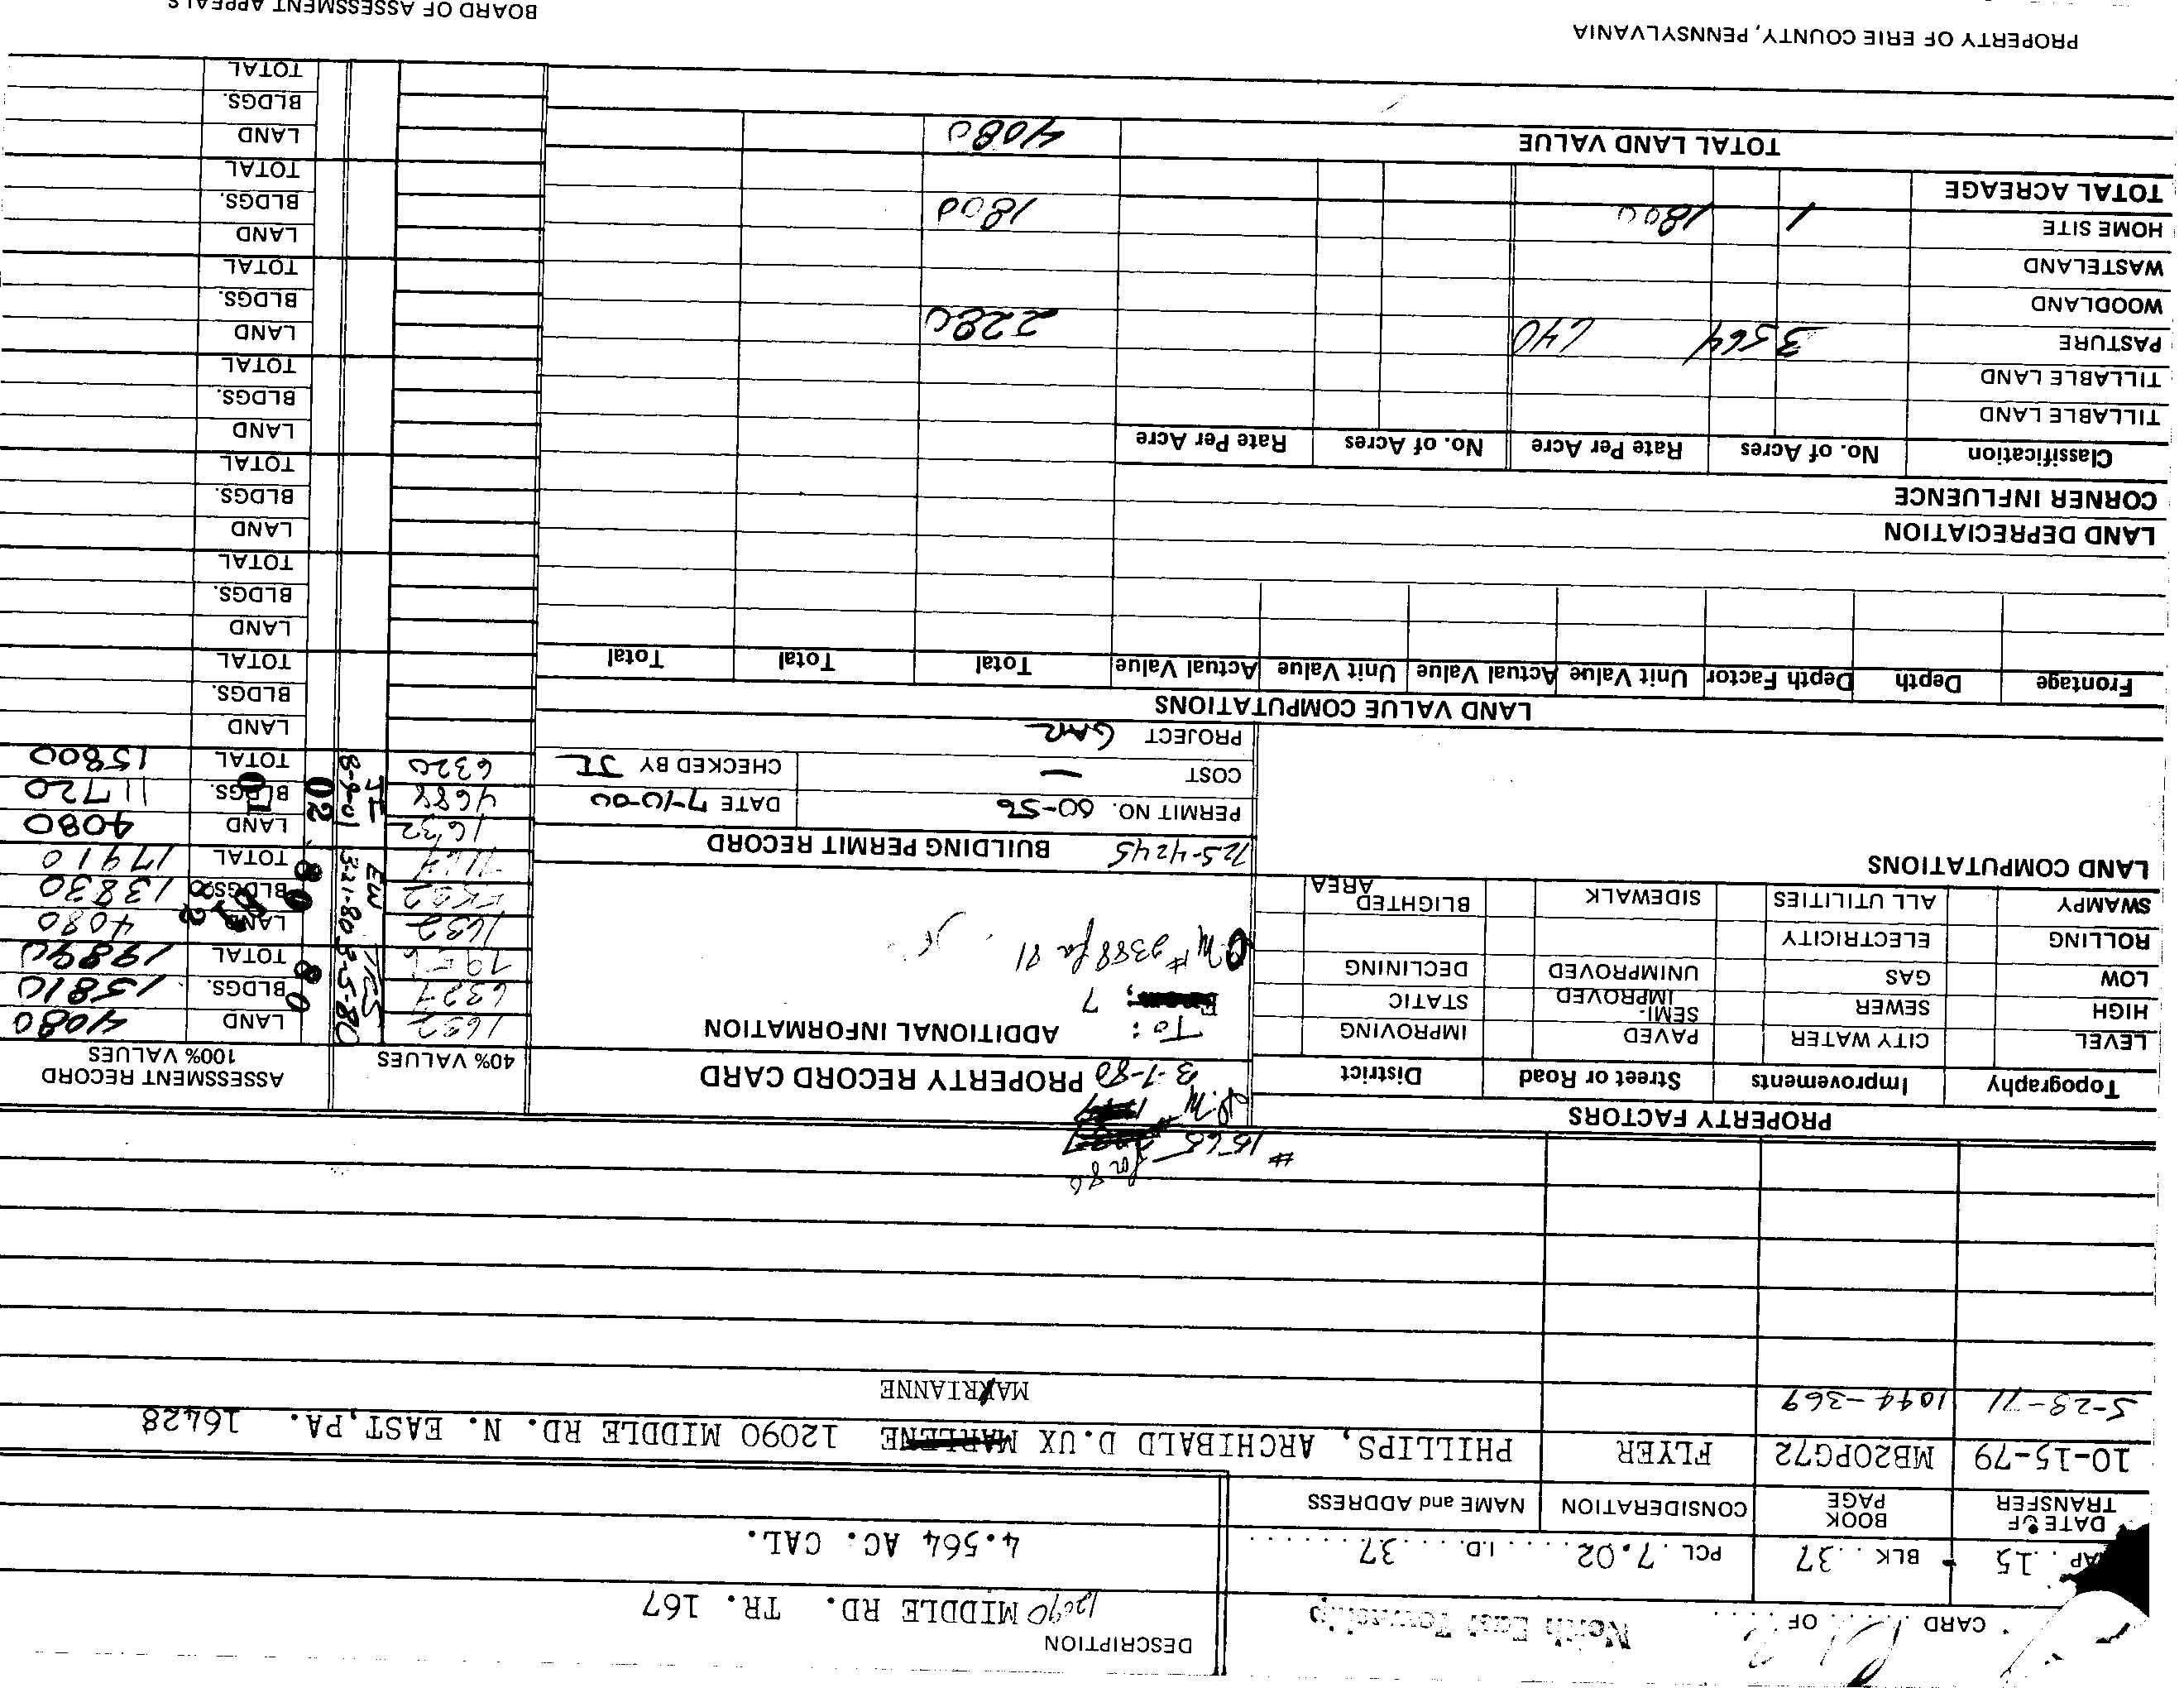 DESCRIPTION
CARD 1 OF 2 North East Township 12090 MIDDLE RD. TR. 167
AP 15 BLK 37 PCL. 7.02 I.D. 37
4.564 AC. CAL.
DATE OF TRANSFER BOOK PAGE CONSIDERATION NAME and ADDRESS
10-15-79 MB20PG72 FLYER PHILLIPS, ARCHIBALD D.UX MARLENE 12090 MIDDLE RD. N. EAST,PA. 16428
5-28-71 1044-369 MARIANNE
for 80
# 1565
PROPERTY FACTORS
3-7-80 PROPERTY RECORD CARD 40% VALUES ASSESSMENT RECORD 100% VALUES
Topography Improvements Street or Road District
LEVEL CITY WATER PAVED IMPROVING
HIGH SEWER SEMI-IMPROVED STATIC
LOW GAS UNIMPROVED DECLINING
ROLLING ELECTRICITY
SWAMPY ALL UTILITIES SIDEWALK BLIGHTED AREA
LAND COMPUTATIONS
To: ADDITIONAL INFORMATION
From; 7
CM # 2388 for 81
725-4245 BUILDING PERMIT RECORD
PERMIT NO. 00-56 DATE 7-10-00
COST — CHECKED BY JI
PROJECT GAR
1632 TRS 3-5-80 80 LAND 4080
6327 BLDGS. 15810
TOTAL 19890
1632 EW 3-21-80 80 LAND 4080
BLDGS. 13830
TOTAL 17910
1632 JI 8-9-01 02 LAND 4080
4688 BLDGS. 11720
6320 TOTAL 15800
LAND
BLDGS.
TOTAL
LAND
BLDGS.
TOTAL
LAND
BLDGS.
TOTAL
LAND
BLDGS.
TOTAL
LAND
BLDGS.
TOTAL
LAND
BLDGS.
TOTAL
LAND
BLDGS.
TOTAL
LAND VALUE COMPUTATIONS
Frontage Depth Depth Factor Unit Value Actual Value Unit Value Actual Value Total Total Total
LAND DEPRECIATION
CORNER INFLUENCE
Classification No. of Acres Rate Per Acre No. of Acres Rate Per Acre
TILLABLE LAND
TILLABLE LAND
PASTURE 3 564 640 2280
WOODLAND
WASTELAND
HOME SITE 1 1800 1800
TOTAL ACREAGE
TOTAL LAND VALUE 4080
PROPERTY OF ERIE COUNTY, PENNSYLVANIA BOARD OF ASSESSMENT APPEALS